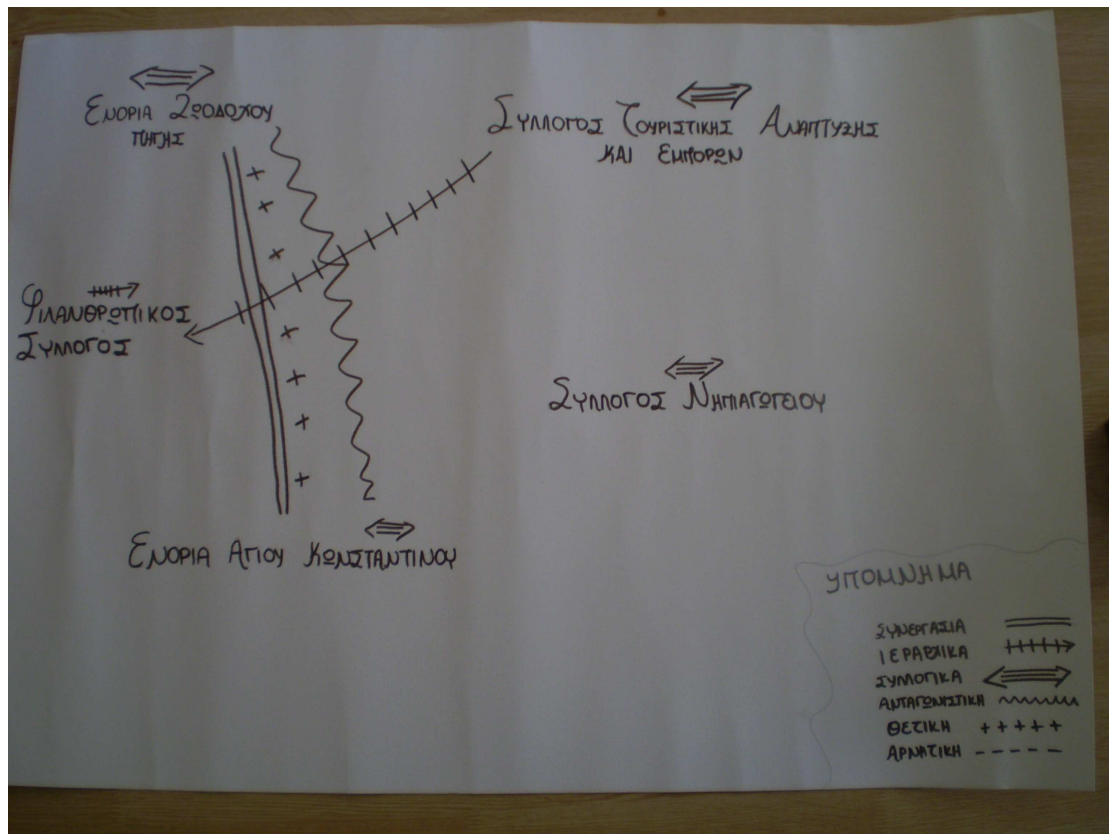 Ενορια Ζωοδοχου
πηγης
Συλλογος Τουριστικης Αναπτυξης
και Εμπορων
Φιλανθρωπικος
Συλλογος
Συλλογος Νηπιαγωγειου
Ενορια Αγιου Κωνσταντινου
ΥΠΟΜΝΗΜΑ
ΣΥΝΕΡΓΑΣΙΑ
ΙΕΡΑΡΧΙΚΑ
ΣΥΛΛΟΓΙΚΑ
ΑΝΤΑΓΩΝΙΣΤΙΚΗ
ΘΕΤΙΚΗ
ΑΡΝΑΤΙΚΗ